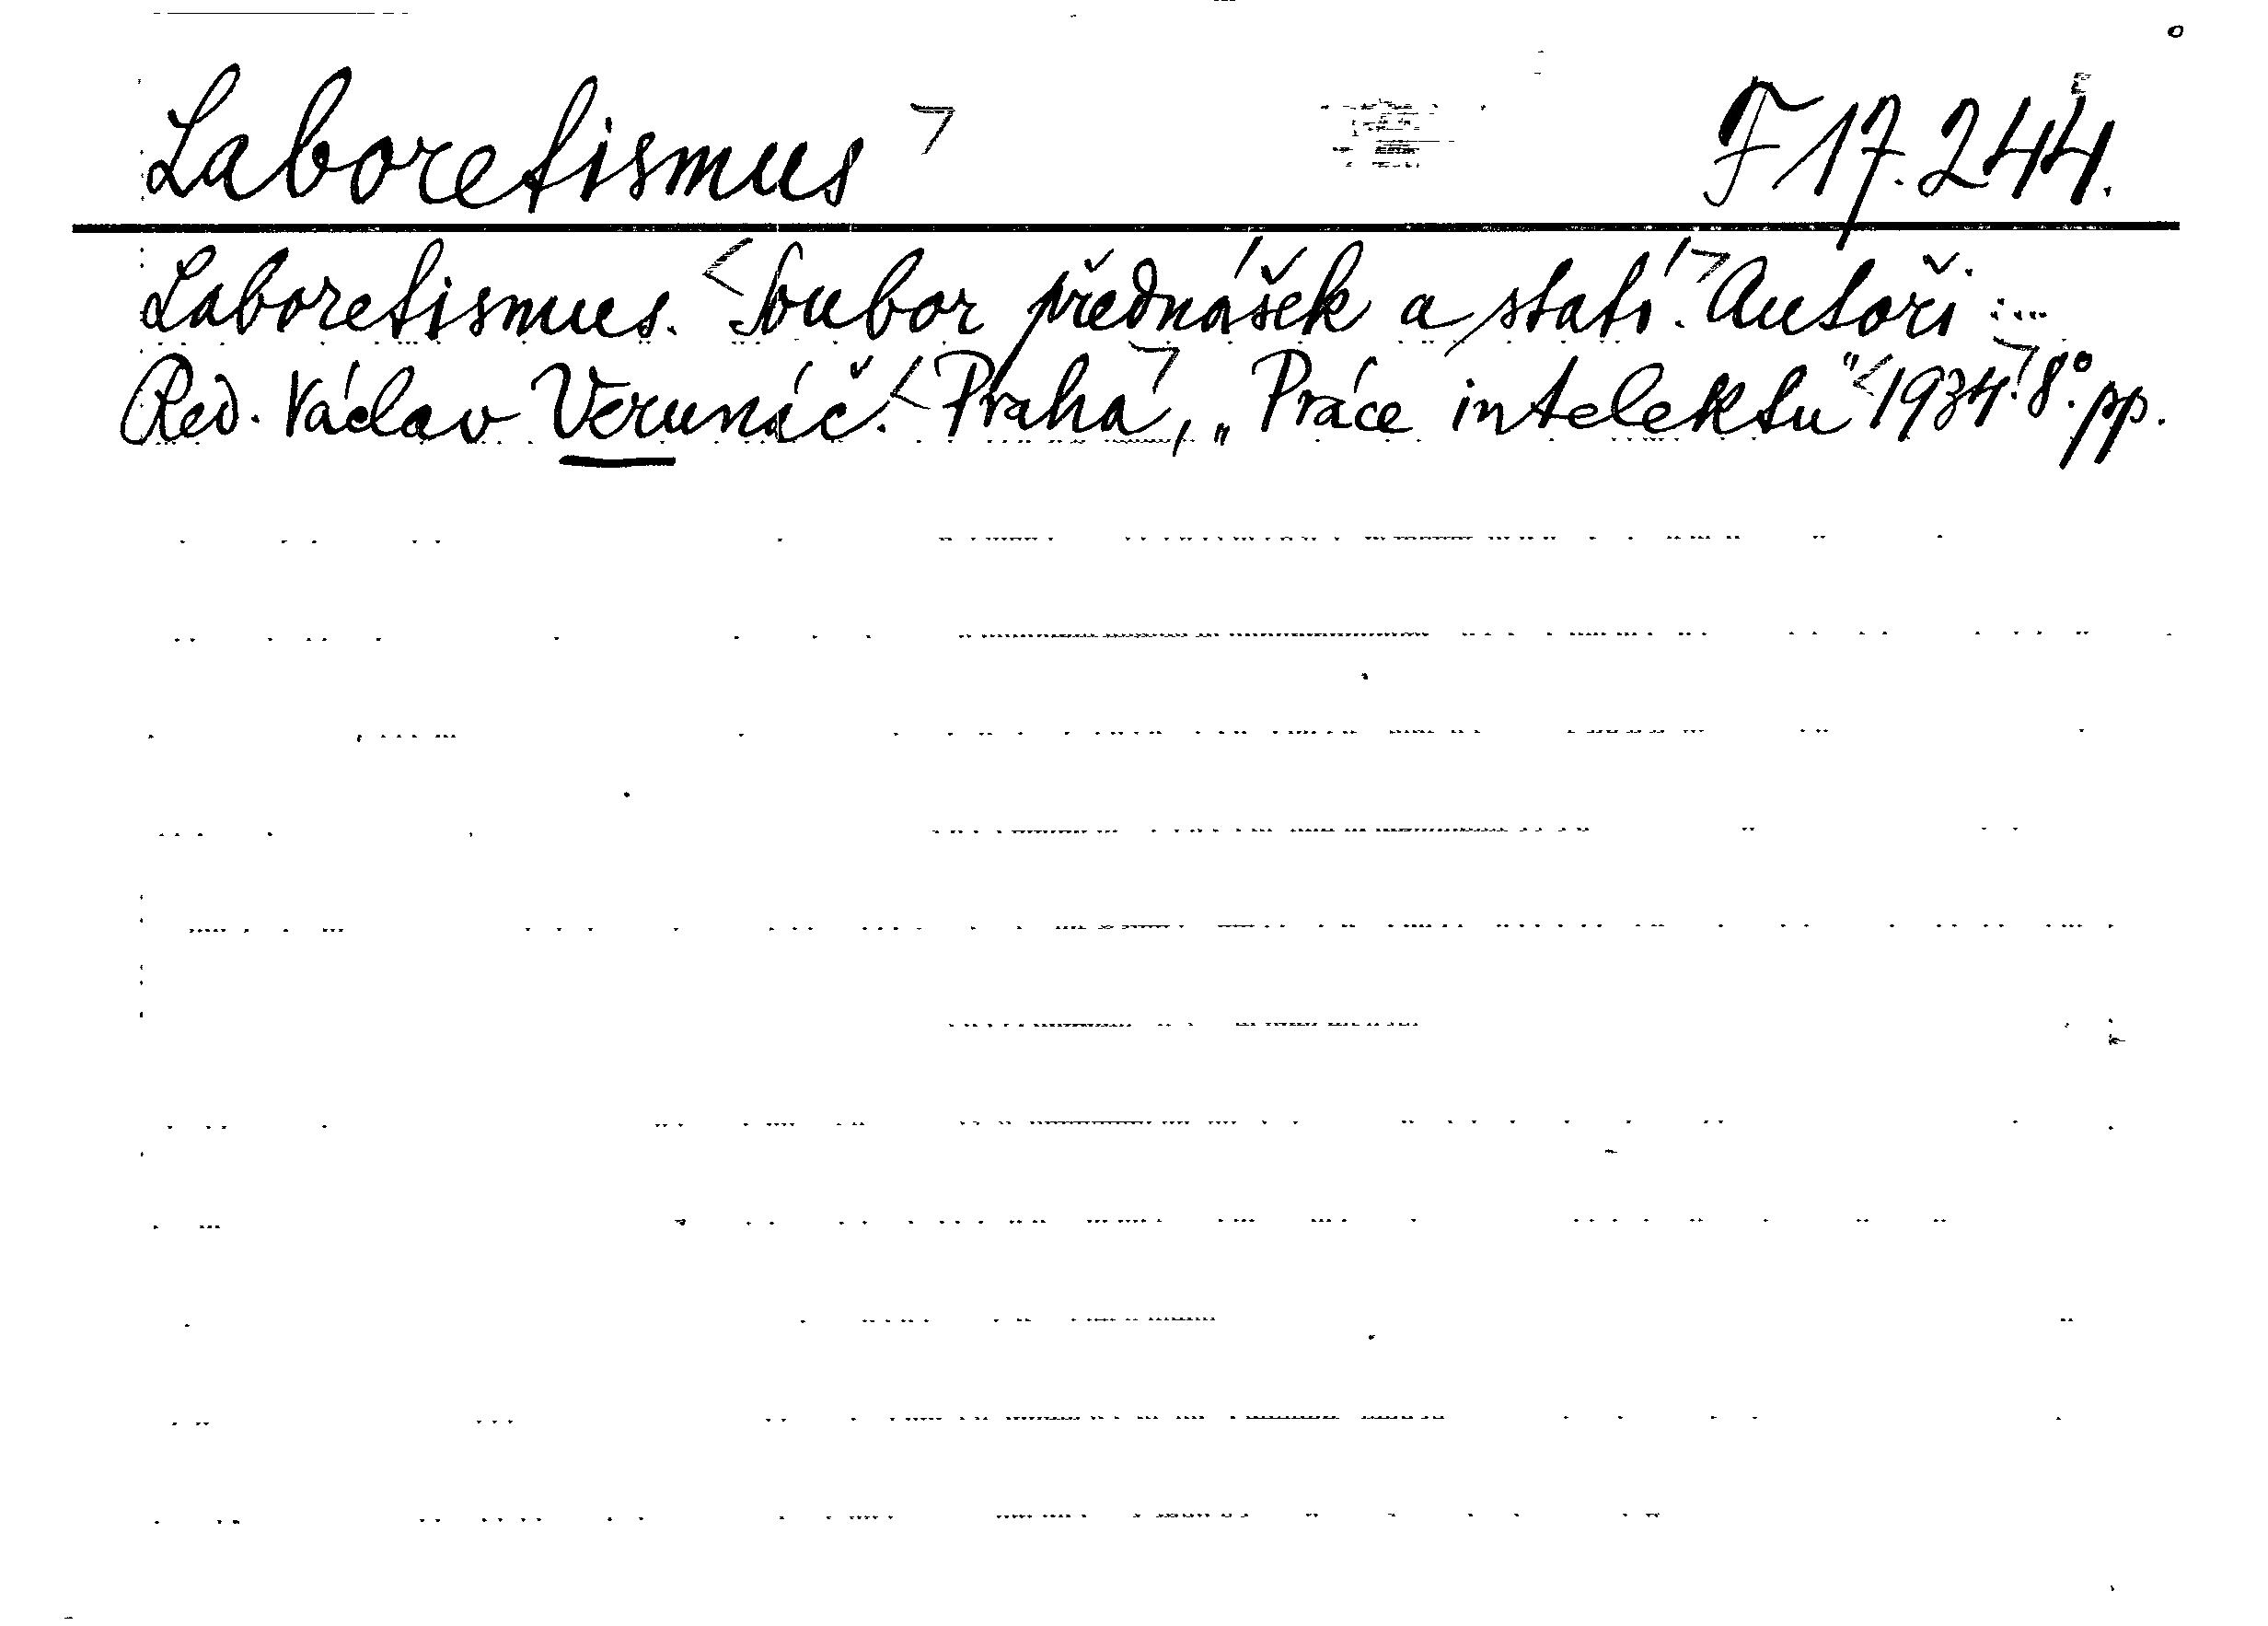 Laboretismus F 17.244.
Laboretismus. Soubor přednášek a statí. Autoři: ...
Red. Václav Verunáč. Praha, „Práce intelektu" 1934. 8°. pp.